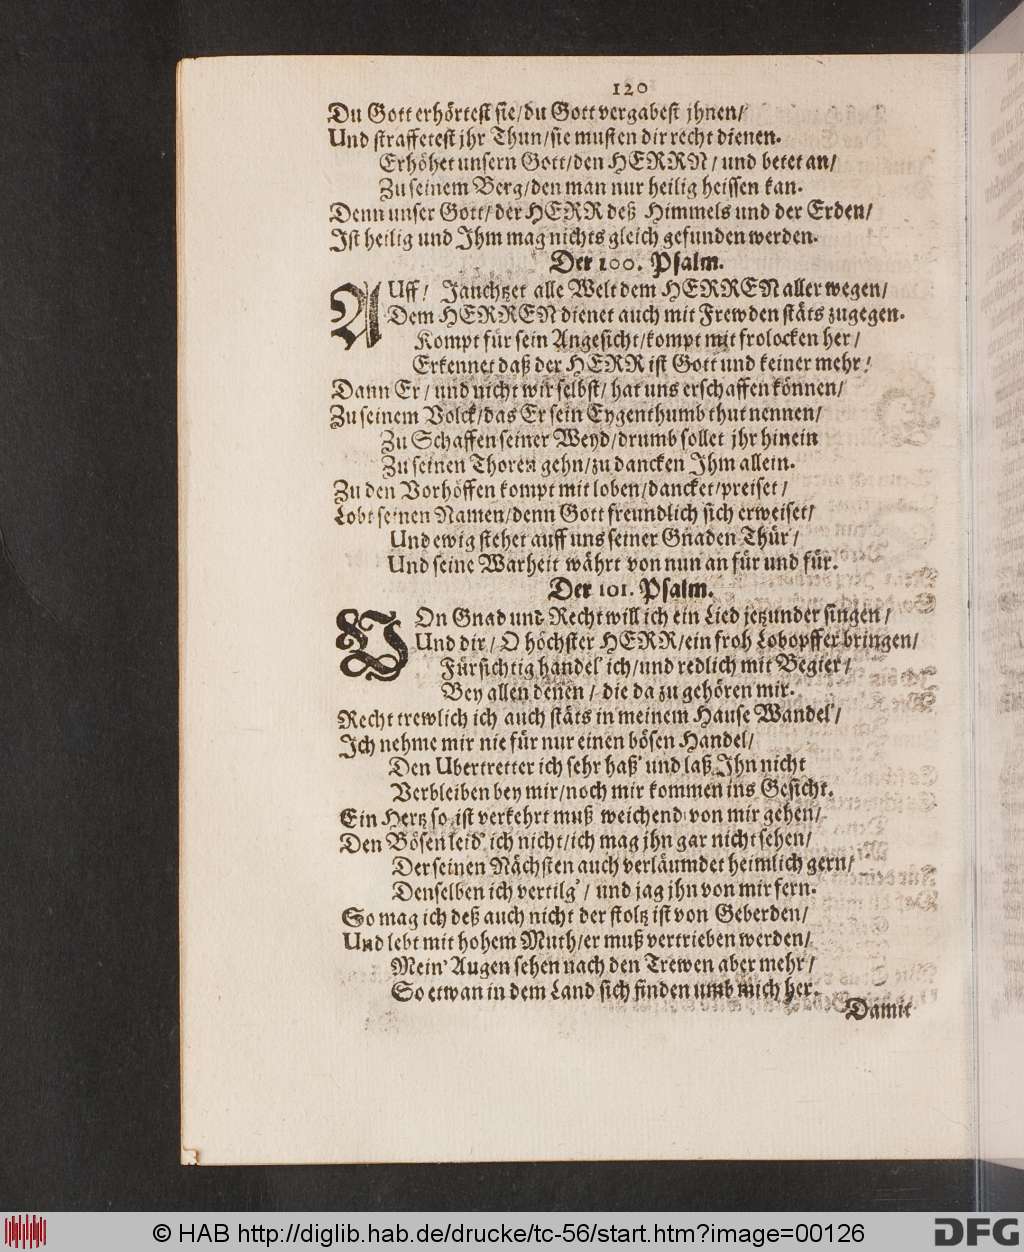 120
Du Gott erhörtest sie/du Gott vergabest jhnen/
Und straffetest jhr Thun/sie musten dir recht dienen.
Erhöhet unsern Gott/den HERRN/ und betet an/
Zu seinem Berg/den man nur heilig heissen kan.
Denn unser Gott/der HERR deß Himmels und der Erden/
Ist heilig und Ihm mag nichts gleich gefunden werden.
Der 100. Psalm.
AUff/ Jauchtzet alle Welt dem HERREN aller wegen/
Dem HERREN dienet auch mit Frewden stäts zugegen.
Kompt für sein Angesicht/kompt mit frolocken her/
Erkennet daß der HERR ist Gott und keiner mehr/
Dann Er/ und nicht wir selbst/ hat uns erschaffen können/
Zu seinem Volck/das Er sein Eygenthumb thut nennen/
Zu Schaffen seiner Weyd/drumb sollet jhr hinein
Zu seinen Thoren gehn/zu dancken Ihm allein.
Zu den Vorhöffen kompt mit loben/dancket/preiset/
Lobt seinen Namen/denn Gott freundlich sich erweiset/
Und ewig stehet auff uns seiner Gnaden Thür/
Und seine Warheit währt von nun an für und für.
Der 101. Psalm.
VOn Gnad und Recht will ich ein Lied jetzunder singen/
Und dir/ O höchster HERR/ein froh Lobopffer bringen/
Fürsichtig handel' ich/und redlich mit Begier/
Bey allen denen/ die da zu gehören mir.
Recht trewlich ich auch stäts in meinem Hause Wandel'/
Ich nehme mir nie für nur einen bösen Handel/
Den Ubertretter ich sehr haß' und laß Ihn nicht
Verbleiben bey mir/noch mir kommen ins Gesicht.
Ein Hertz so ist verkehrt muß weichend von mir gehen/
Den Bösen leid' ich nicht/ich mag jhn gar nicht sehen/
Der seinen Nächsten auch verläumdet heimlich gern/
Denselben ich vertilg'/ und jag jhn von mir fern.
So mag ich deß auch nicht der stoltz ist von Geberden/
Und lebt mit hohem Muth/er muß vertrieben werden/
Mein' Augen sehen nach den Trewen aber mehr/
So etwan in dem Land sich finden umb mich her.
Damit
© HAB http://diglib.hab.de/drucke/tc-56/start.htm?image=00126
DFG